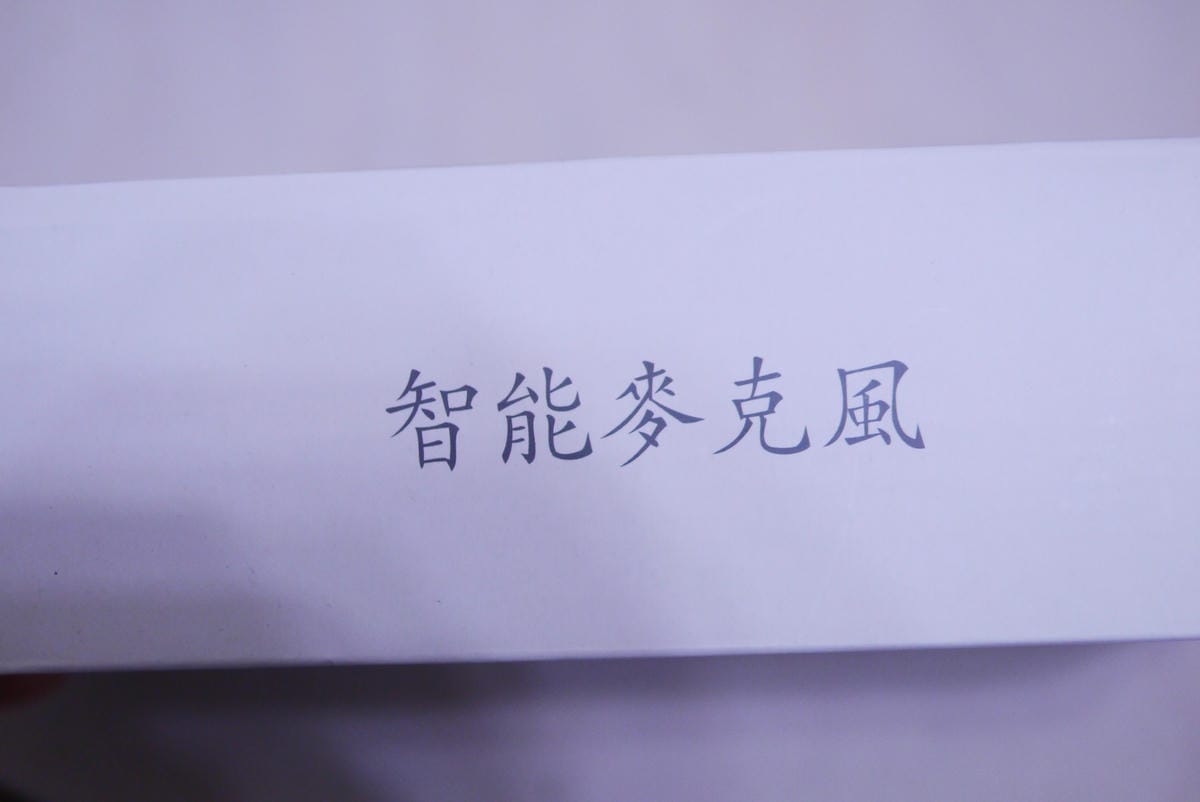 智能麥克風